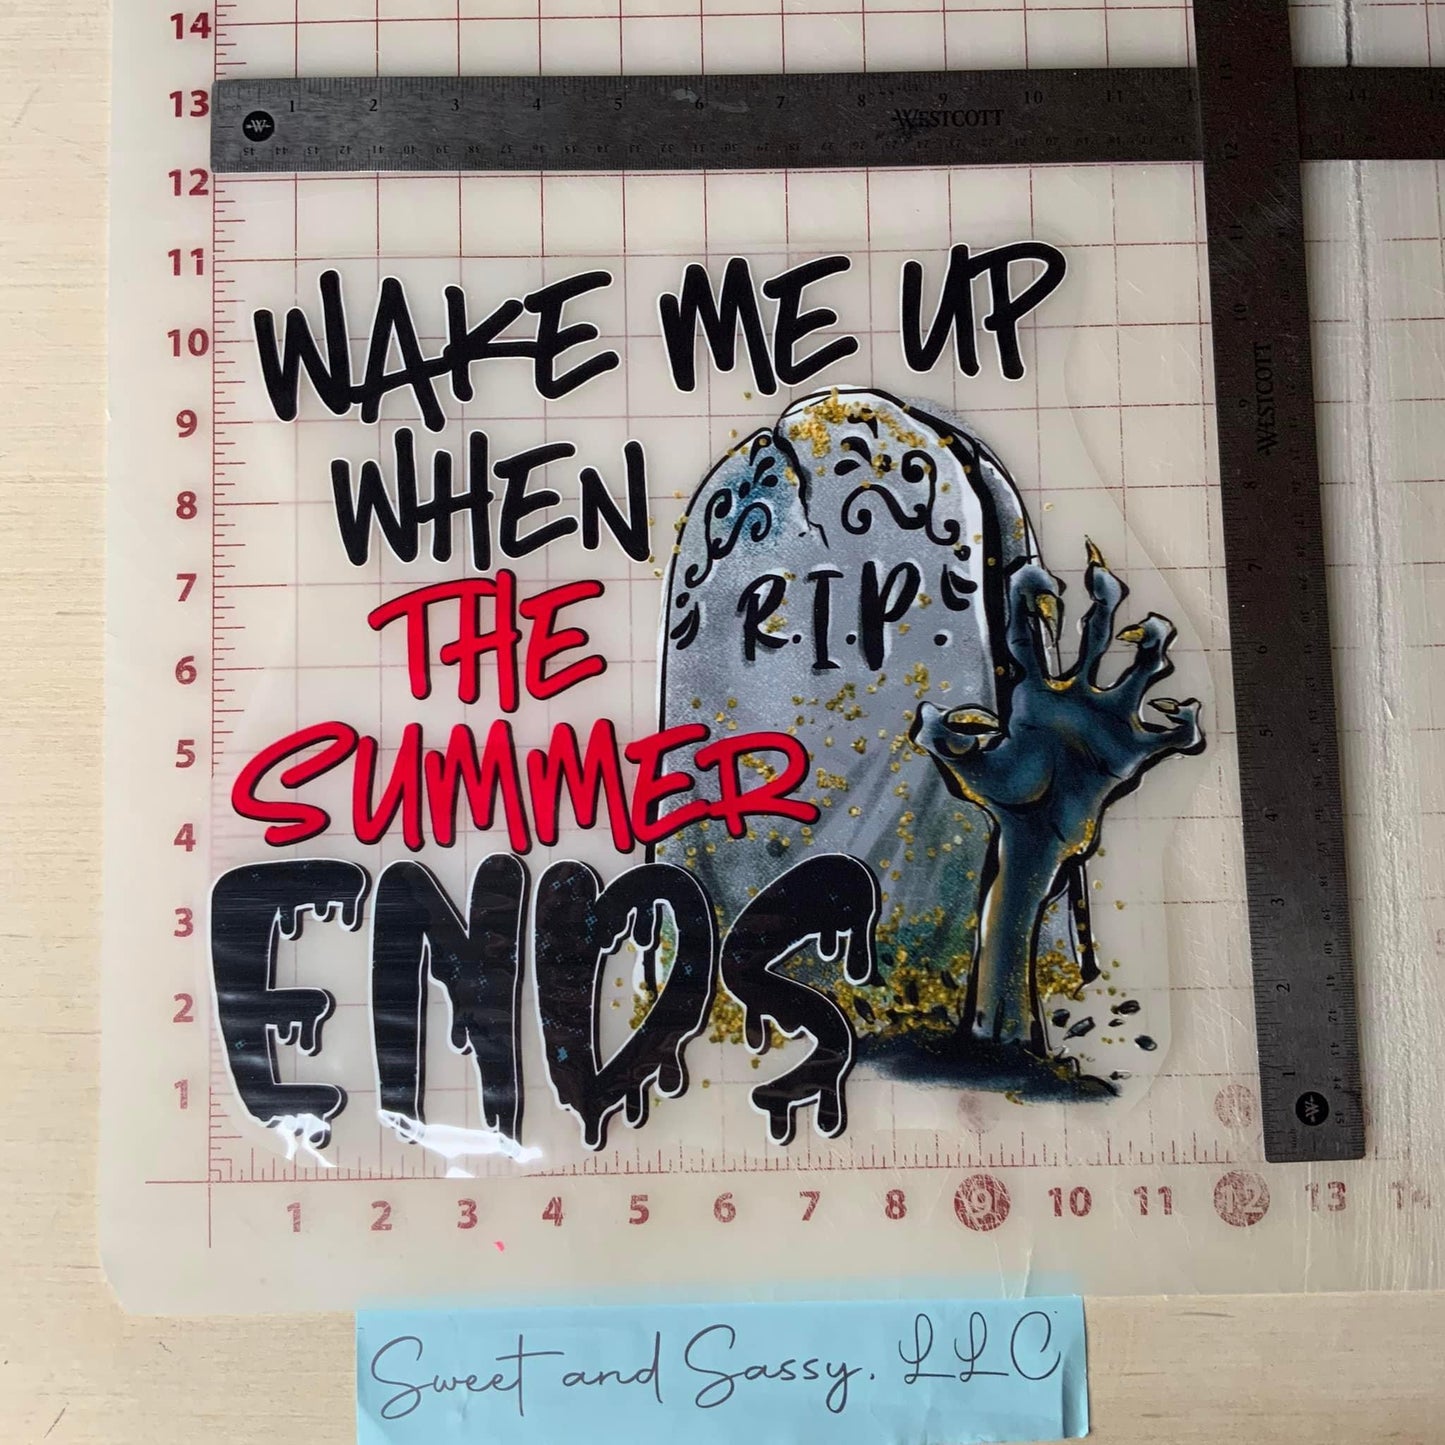 14
13
12
11
10
9
8
7
6
5
4
3
2
1
1 2 3 4 5 6 7 8 9 10 11
WESTCOTT
WESTCOTT
WAKE ME UP
WHEN
THE
SUMMER
ENDS
R.I.P.
1 2 3 4 5 6 7 8 9 10 11 12 13
Sweet and Sassy, LLC